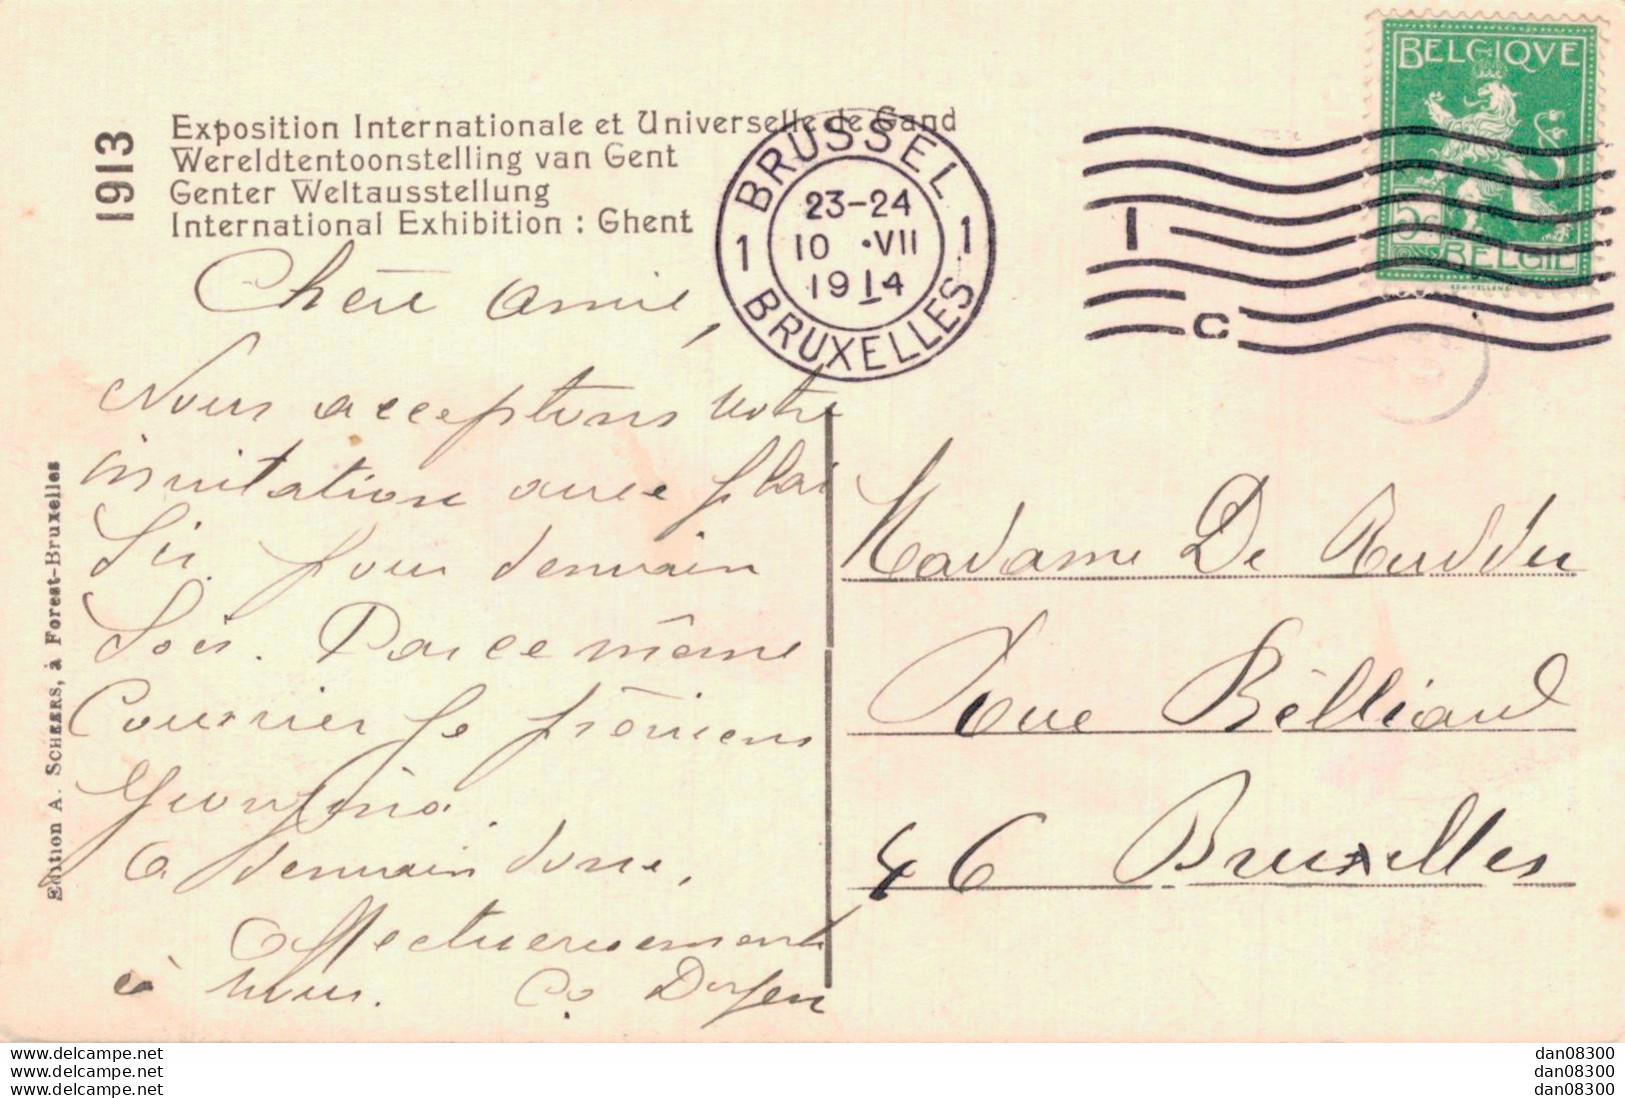 1913
Exposition Internationale et Universelle de Gand
Wereldtentoonstelling van Gent
Genter Weltausstellung
International Exhibition : Ghent
BRUSSEL
1 23-24 1
10 •VII
1914
BRUXELLES
BELGIQVE
5c
BELGIË
1
C
Chère amie,
Nous acceptons votre
invitation avec plai
sir pour demain
soir. Par ce même
courrier je préviens
à demain donc,
Affectueusement
à vous.
Madame De Rudder
Rue Bélliard
46 Bruxelles
Edition A. SCHEERS, à Forest-Bruxelles
delcampe.net
delcampe.net
delcampe.net
dan08300
dan08300
dan08300